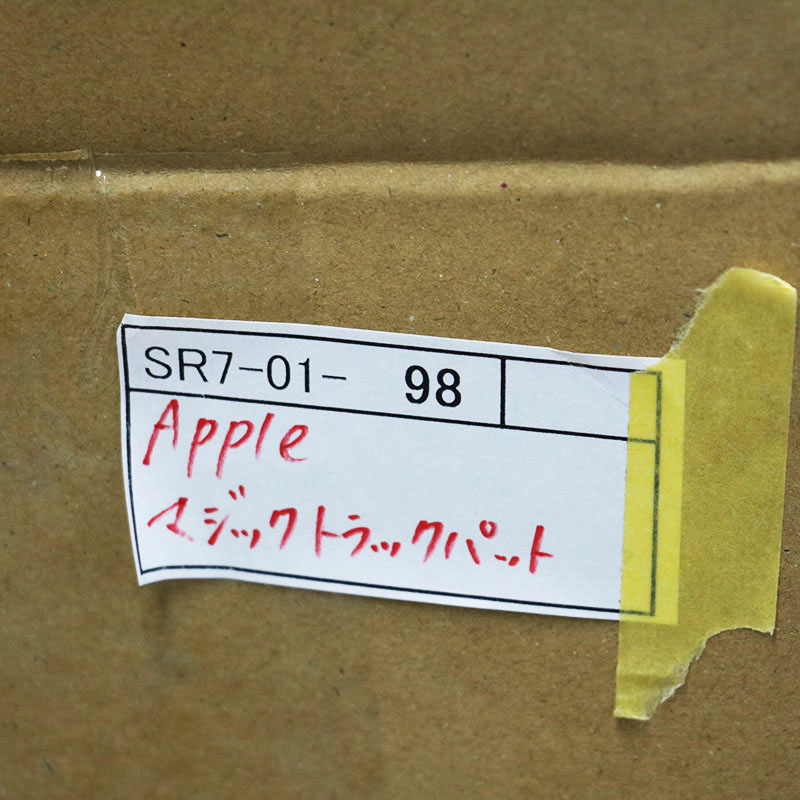 SR7-01- 98
Apple
マジックトラックパット